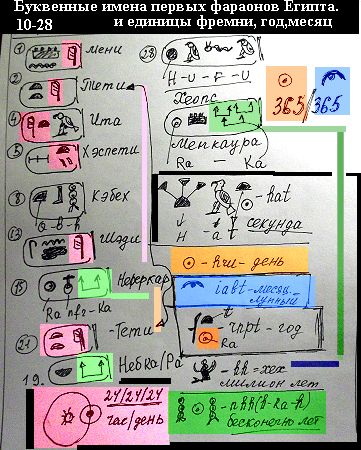 Буквенные имена первых фараонов Египта.
10-28 и единицы фремни, год,месяц
1 Мени
2 Тети
4 Ита
5 Хэспети
8 Кэбех
Q-b-h
13 Шэди
15 Неферкар
Ra nfr-Ka
21 -Тети
19. Небка/Ра
28
H-U-F-U
Хеопс
Менкаура
Ra - Ka
365/365
- hat
H a t секунда
- hru - день
iabt-месяц
лунный
rnpt - год
Ra
- hh = хех
миллион лет
24/24/24
час/день
- nhh(h-Ra-h)
бесконечно лет